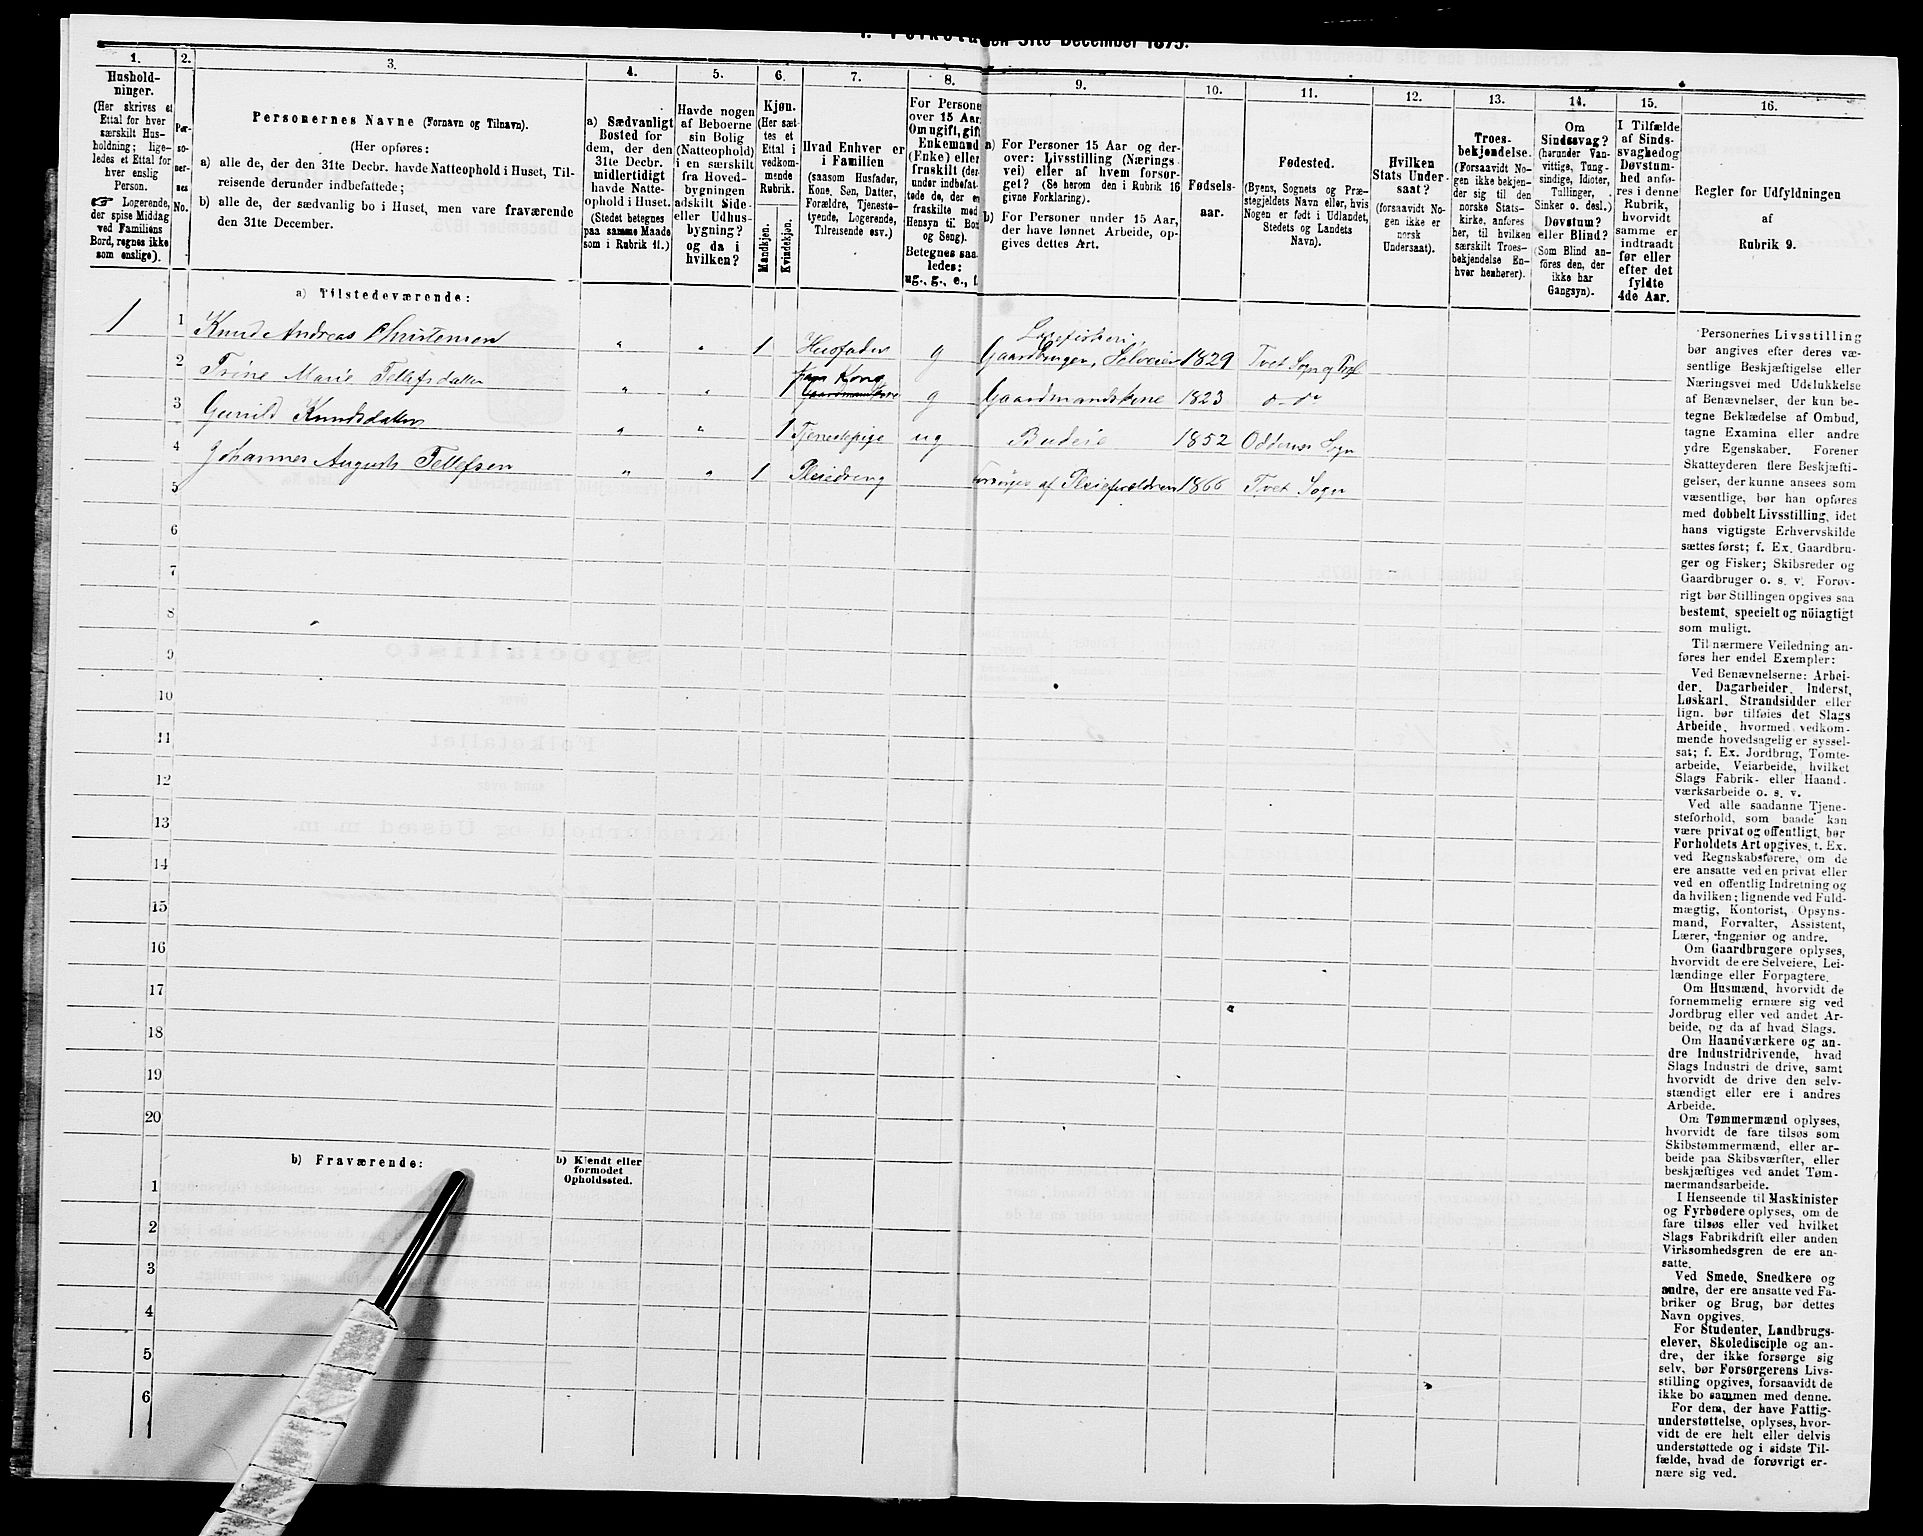 1. Folketal den 31te December 1875.
1.
Hushold-
ninger.
(Her skrives et
Ettal for hver
særskilt Hus-
holdning; lige-
ledes et Ettal for
hver enslig
Person.
☞ Logerende,
der spise Middag
ved Familiens
Bord, regnes ikke
som enslige).
2.
Per-
so-
ner-
nes
No.
3.
Personernes Navne (Fornavn og Tilnavn).
(Her opføres:
a) alle de, der den 31te Decbr. havde Natteophold i Huset, Til-
reisende derunder indbefattede;
b) alle de, der sædvanlig bo i Huset, men vare fraværende
den 31te December.
4.
a) Sædvanligt
Bosted for
dem, der den
31te Decbr.
midlertidigt
havde Natte-
ophold i Huset.
(Stedet betegnes
paa samme Maade
som i Rubrik 11.)
5.
Havde nogen
af Beboerne
sin Bolig
(Natteophold)
i en særskilt
fra Hoved-
bygningen
adskilt Side-
eller Udhus-
bygning?
og da i
hvilken?
6.
Kjøn.
(Her sæt-
tes et
Ettal i
vedkom-
mende
Rubrik.
Mandkjøn.
Kvindekjøn.
7.
Hvad Enhver er
i Familien
(saasom Husfader,
Kone, Søn, Datter,
Forældre, Tjeneste-
tyende, Logerende,
Tilreisende osv.)
8.
For Persone
over 15 Aar
Om ugift, gift
Enkemand
(Enke) eller
fraskilt (der-
under indbefat-
tede de, der er
fraskilte med
Hensyn til Bor
og Seng).
Betegnes saa-
ledes:
ug., g., e., f.
9.
a) For Personer 15 Aar og der-
over: Livsstilling (Nærings
vei) eller af hvem forsør-
get? (Se herom den i Rubrik 16
givne Forklaring).
b) For Personer under 15 Aar,
der have lønnet Arbeide, op-
gives dettes Art.
10.
Fødsels-
aar.
11.
Fødested.
(Byens, Sognets og Præ-
stegjeldets Navn eller, hvis
Nogen er født i Udlandet,
Stedets og Landets
Navn).
12.
Hvilken
Stats Under-
saat?
(forsaavidt No-
gen ikke er
norsk
Undersaat).
13.
Troes-
bekjendelse.
(Forsaavidt No-
gen ikke bekjen-
der sig til den
norske Stats-
kirke, anføres
her, til hvilken
særskilt Troes-
bekjendelse En-
hver henhører).
14.
Om
Sindssvag?
(herunder Van-
vittige, Tung-
sindige, Idioter,
Tullinger,
Sinker o. desl.)
Døvstum?
eller Blind?
(Som Blind an-
føres den, der
ikke har
Gangsyn).
15.
I Tilfælde
af Sinds-
svaghed og
Døvstum-
hed anfø-
res i denne
Rubrik,
hvorvidt
samme er
indtraadt
før eller
efter det
fyldte
4de Aar.
16.
Regler for Udfyldningen
af
Rubrik 9.
a) Tilstedeværende:
1 1 Knud Andreas Christensen " " 1 Husfader g Gaardbruger, Selveier 1829 Tvet Sogn og
2 Trine Marie Tellefsdatter " " 1 Kone g Gaardmandskone 1823 d-do
3 Gunild Knudsdatter " " 1 Tjenestepige ug Budeie 1852 Oddernes Sogn
4 Johannes August Tellefsen " " 1 Pleiedreng Forsørges af Pleieforældrene 1866 Tvet Sogn
5
6
7
8
9
10
11
12
13
14
15
16
17
18
19
20
b) Fraværende:
b) Kjendt eller
formodet
Opholdssted.
1
2
3
4
5
6
Personernes Livsstilling
bør angives efter deres væ-
sentlige Beskjæftigelse eller
Næringsvei med Udelukkelse
af Benævnelser, der kun be-
tegne Beklædelse af Ombud,
tagne Examina eller andre
ydre Egenskaber. Forener
Skatteyderen flere Beskjæfti-
gelser, der kunne ansees som
væsentlige, bør han opføres
med dobbelt Livsstilling, idet
hans vigtigste Erhvervskilde
sættes først; f. Ex. Gaardbru-
ger og Fisker; Skibsreder og
Gaardbruger o. s. v. Forøv-
rigt bør Stillingen opgives saa
bestemt, specielt og nöiagtigt
som muligt.
Til nærmere Veiledning an-
føres her endel Exempler:
Ved Benævnelserne: Arbei-
der, Dagarbeider, Inderst,
Løskarl, Strandsidder eller
lign. bør tilføies det Slags
Arbeide, hvormed vedkom-
mende hovedsagelig er syssel-
sat; f. Ex. Jordbrug, Tomte-
arbeide, Veiarbeide, hvilket
Slags Fabrik- eller Haand-
værksarbeide o. s. v.
Ved alle saadanne Tjene-
steforhold, som baade kan
være privat og offentligt, bør
Forholdets Art opgives, t. Ex.
ved Regnskabsførere, om de
ere ansatte ved en privat eller
ved en offentlig Indretning og
da hvilken; lignende ved Fuld-
mægtig, Kontorist, Opsyns-
mand, Forvalter, Assistent,
Lærer, Ingeniør og andre.
Om Gaardbrugere oplyses,
hvorvidt de ere Selveiere, Lei-
lændinge eller Forpagtere.
Om Husmænd, hvorvidt de
fornemmelig ernære sig ved
Jordbrug eller ved andet Ar-
beide, og da af hvad Slags.
Om Haandværkere og an-
dre Industridrivende, hvad
Slags Industri de drive, samt
hvorvidt de drive den selv-
stændigt eller ere i andres
Arbeide.
Om Tømmermænd oplyses,
hvorvidt de fare tilsøs som
Skibstømmermænd, eller ar-
beide paa Skibsværfter, eller
beskjæftiges ved andet Tøm-
mermandsarbeide.
I Henseende til Maskinister
og Fyrbødere oplyses, om de
fare tilsøs eller ved hvilket
Slags Fabrikdrift eller anden
Virksomhedsgren de ere an-
satte.
Ved Smede, Snedkere og
andre, der ere ansatte ved Fa-
briker og Brug, bør dettes
Navn opgives.
For Studenter, Landbrugs-
elever, Skoledisciple og an-
dre, der ikke forsørge sig
selv, bør Forsørgerens Livs-
stilling opgives, forsaavidt de
ikke bo sammen med denne.
For dem, der have Fattig-
understøttelse, oplyses, hvor-
vidt de ere helt eller delvis
understøttede og i sidste Til-
fælde, hvad de forøvrigt er-
nære sig ved.